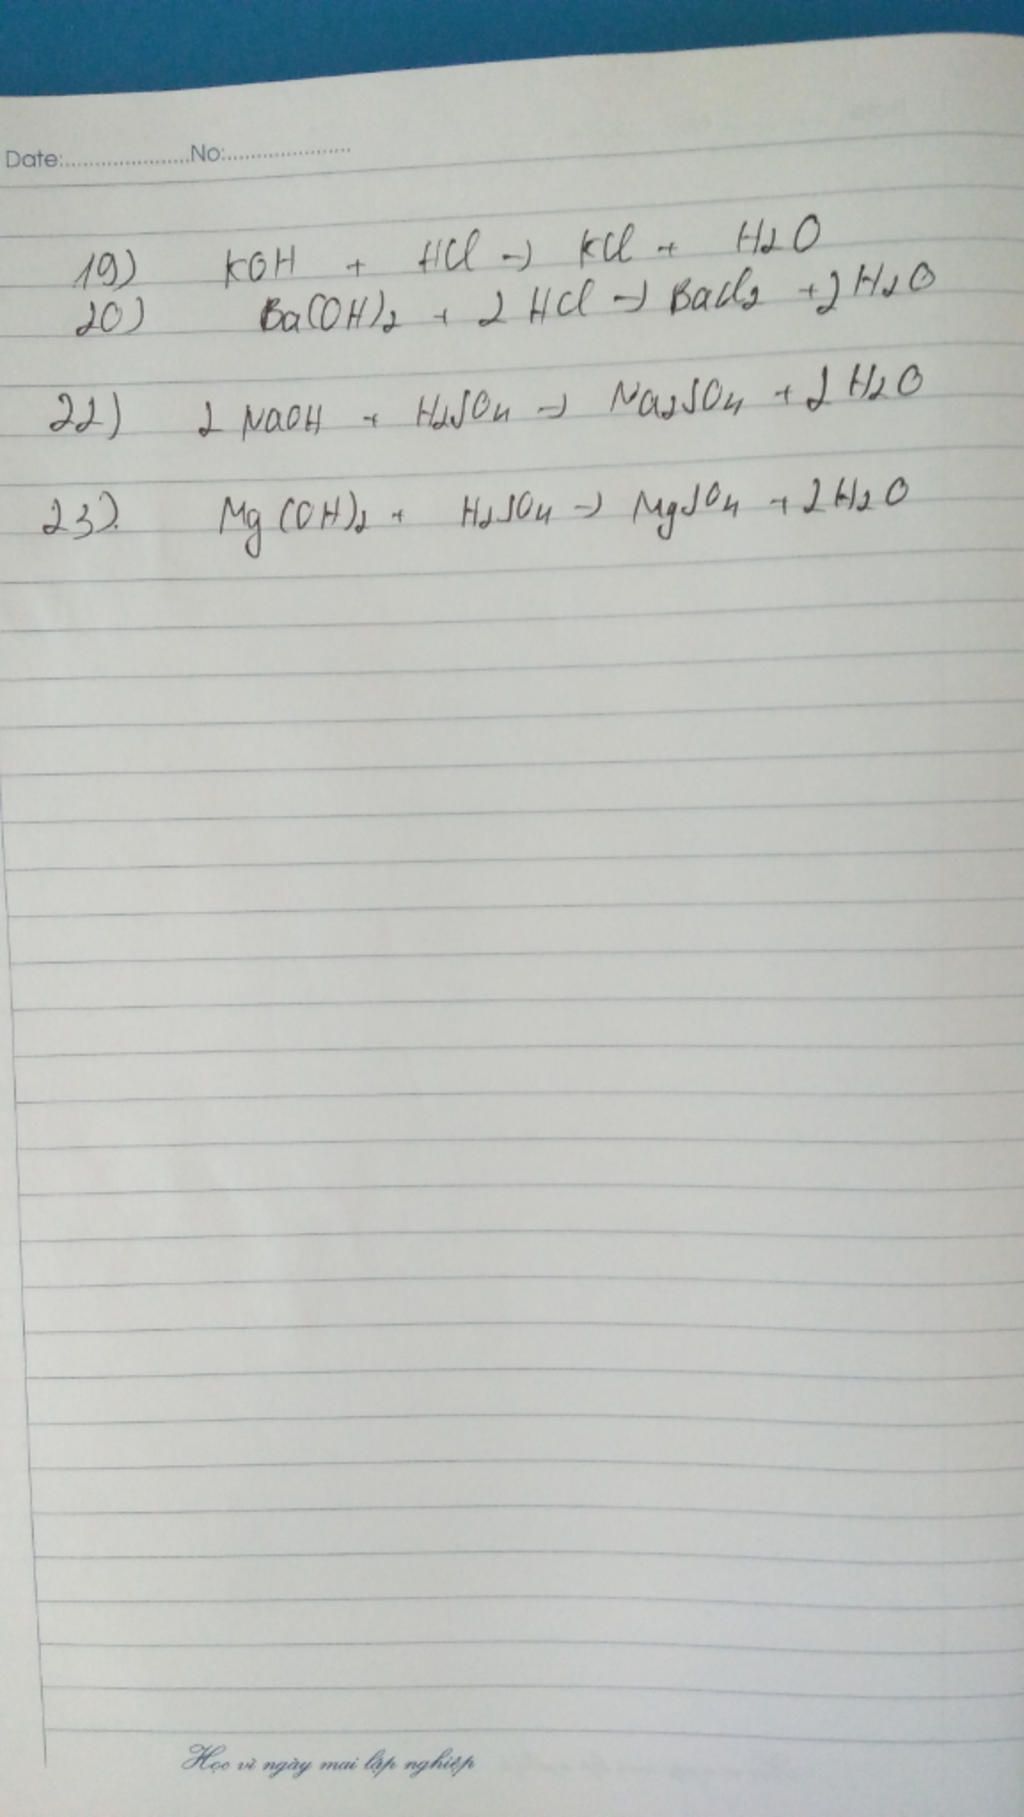 Date:......................No:......................
19) KOH + HCl → KCl + H2O
20) Ba(OH)2 + 2 HCl → BaCl2 + 2 H2O
22) 2 NaOH + H2SO4 → Na2SO4 + 2 H2O
23) Mg(OH)2 + H2SO4 → MgSO4 + 2 H2O
Học vì ngày mai lập nghiệp